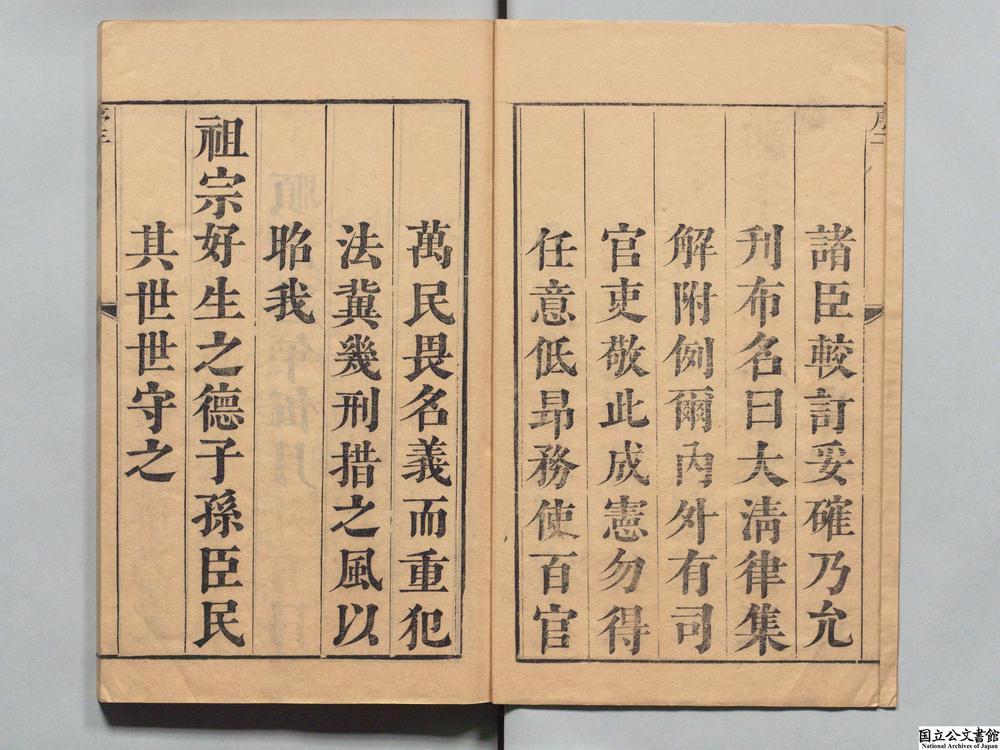 諸臣較訂妥確乃允
刋布名曰大清律集
解附例爾内外有司
官吏敬此成憲勿得
任意低昂務使百官
萬民畏名義而重犯
法冀幾刑措之風以
昭我
祖宗好生之德子孫臣民
其世世守之
国立公文書館
National Archives of Japan